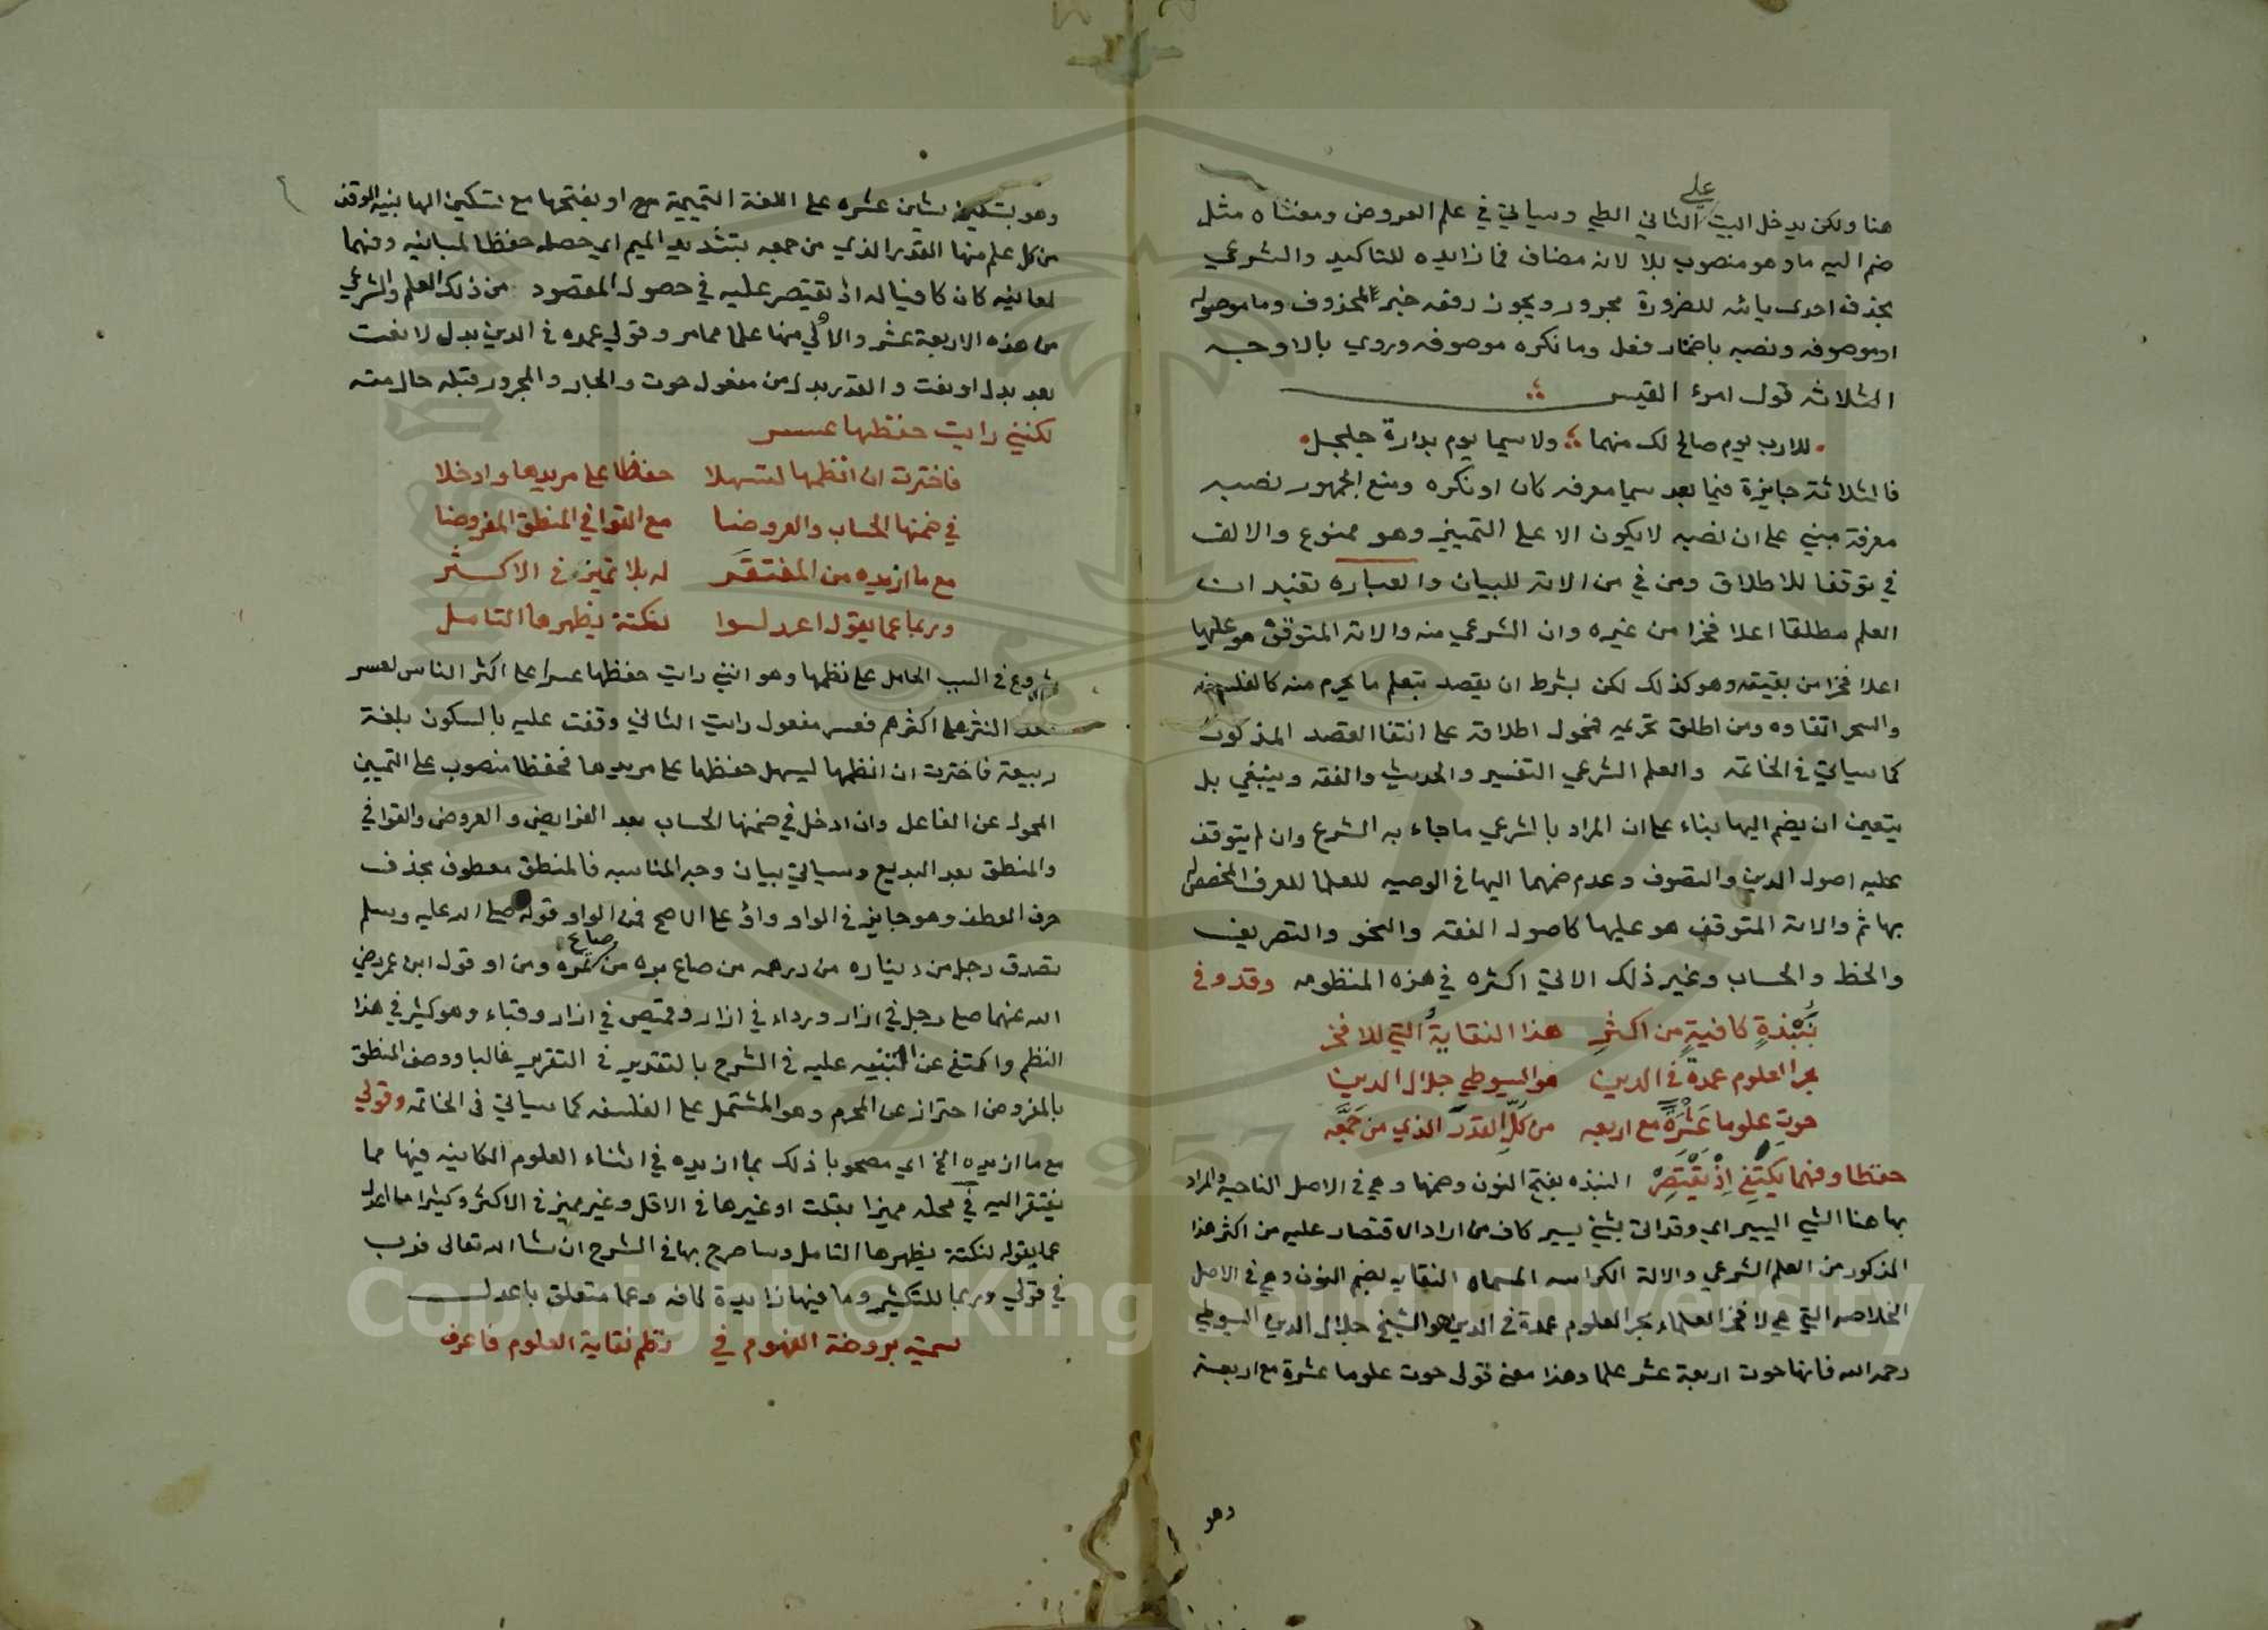 هنا ولكن يدخل البيت على الثاني الطي وسياتي في علم العروض ومعناه مثل
ضم اليه ما وهو منصوب بلا لانه مضاف فما زايده للتاكيد والشرعي
بحذف احدى يائه للضرورة مجرور ويجوز رفعه خبر المحذوف وما موصوله
او موصوفه ونصبه باضمار فعل وما نكره موصوفه وروي بالاوجه
الثلاثه قول امرء القيس
للارب يوم صالح لك منهما ولا سيما يوم بدارة جلجل
فالثلاثة جايزة فيما بعد سيما معرفه كان او نكره ومنع الجمهور نصبه
معرفة مبني على ان نصبه لا يكون الا على التمييز وهو ممنوع والالف
في توقفا للاطلاق ومن في من الاته للبيان والعباره تفيد ان
العلم مطلقا اعلا فخرا من غيره وان الشرعي منه والاته المتوقف هو عليها
اعلا فخرا من بقيته وهو كذلك لكن بشرط ان يقصد بتعلم ما يحرم منه كالفلسفه
والسحر اتقاوه ومن اطلق تحريمه فمحول اطلاقه على انتفا القصد المذكور
كما سياتي في الخاتمه والعلم الشرعي التفسير والحديث والفقه وينبغي بل
يتعين ان يضم اليها بناء على ان المراد بالشرعي ما جاء به الشرع وان لم يتوقف
عليه اصول الدين والتصوف وعدم ضمهما اليها في الوصيه للعلما للعرف المخصص
بها ثم والاته المتوقف هو عليها كاصول الفقه والنحو والتصريف
والخط والحساب وغير ذلك الاتي اكثره في هذه المنظومه وقد وفى
بنبذة كافية من اكثر هذا النقاية التي للافخر
بحر العلوم عمدة في الدين هو السيوطي جلال الدين
حوت علوما عشرة مع اربعه من كل القدر الذي من جمعه
حفظا وفهما يكتفي اذ يقتصر النبذه بفتح النون وضمها وهي في الاصل الناحيه والمراد
بها هنا الشي اليسير اي وقد اتى بشي يسير كاف من اراد الاقتصار عليه من اكثر هذا
المذكور من العلم الشرعي والالة الكراسه المسماه النقايه بضم النون وهي في الاصل
الخلاصه التي هي لافخر العلماء بحر العلوم عمدة في الدين هو الشيخ جلال الدين السيوطي
رحمه الله فانها حوت اربعة عشر علما وهذا معنى قولي حوت علوما عشرة مع اربعة
وهو
وهو بتسكين شين عشره على اللغة التميمية مع او بفتحها مع تسكين الها بنية الوقف
من كل علم منها القدر الذي من جمعه بتشديد الميم اي حصله حفظا لمبانيه وفهما
لمعانيه كان كافيا له اذ يقتصر عليه في حصول المقصود من ذلك العلم والشرعي
من هذه الاربعة عشر والالي منها علما مما مر وقولي عمده في الدين بدل لا نعت
بعد بدل او نعت والقدر بدل من مفعول حوت والجار والمجرور قبله حال منه
لكنني رايت حفظها عسر
فاخترت ان انظمها لتسهلا حفظا على مريدها وادخلا
في ضمنها الحساب والعروضا مع القوافي المنطق المفروضا
مع ما ازيده من المفتقر له بلا تميز في الاكثر
وربما عما يقول اعدل لنكتة يظهرها التامل
شروع في السبب الحامل على نظمها وهو انني رايت حفظها عسرا على اكثر الناس لعسر
النثر على اكثرهم فعسر مفعول رايت الثاني وقفت عليه بالسكون بلغة
ربيعة فاخترت ان انظمها ليسهل حفظها على مريدها فحفظا منصوب على التمييز
المحول عن الفاعل وان ادخل في ضمنها الحساب بعد الفرايض والعروض والقوافي
والمنطق بعد البديع وسياتي بيان وجه المناسبه فالمنطق معطوف بحذف
حرف العطف وهو جايز في الواو واو على الاصح فمن الواو قوله صلى الله عليه وسلم
تصدق رجل من ديناره من درهمه من صاع بره من صاع تمره ومن او قول ابن عمر رضي
الله عنهما صلى رجل في ازار ورداء في ازار وقميص في ازار وقباء وهو كثير في هذا
النظم واكتفي عن التنبيه عليه في الشرح بالتقدير في التقرير غالبا ووصف المنطق
بالمفروض احتراز عن المحرم وهو المشتمل على الفلسفه كما سياتي في الخاتمه وقولي
مع ما ازيده الخ اي مصحوبا ذلك بما ازيده في اثناء العلوم الكاينه فيها مما
يفتقر اليه في محله مميزا بقلت او غيرها في الاقل وغير مميز في الاكثر وكثيرا ما اعدل
عما يقوله لنكتة يظهرها التامل وساصرح بها في الشرح ان شا الله تعالى فرب
في قولي وربما للتكثير وما فيها زايدة كافه وعما متعلق باعدل
سميته بروضة الفهوم في نظم نقاية العلوم فاعرف
Copyright © King Saud University
1957